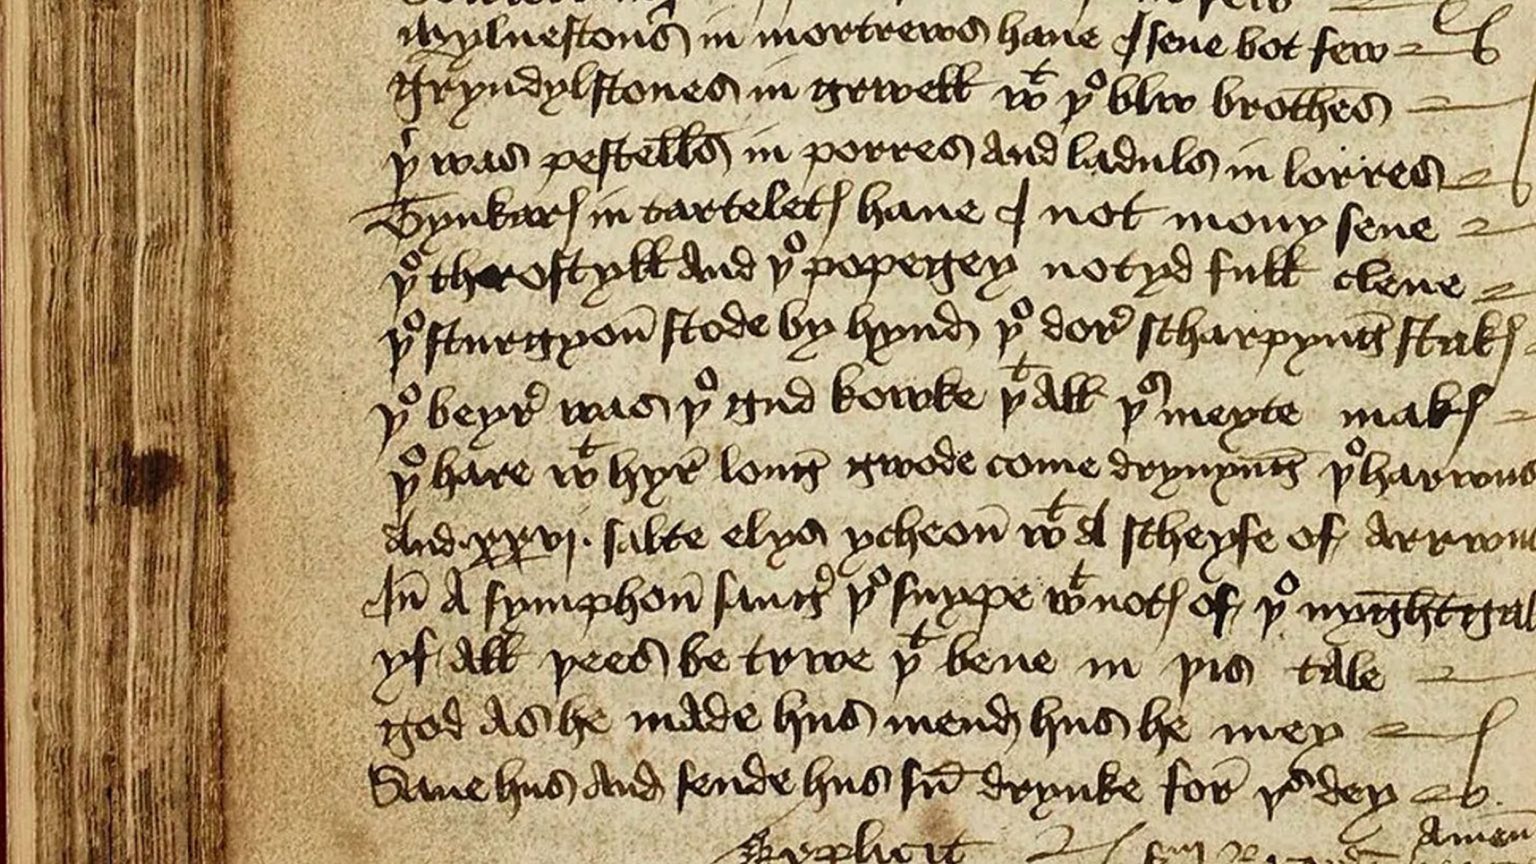 Mylnestons in mortrews haue I sene bot few
gryndylstones in grwell wt þe blw brothes
þer was pestells in porres And laduls in lorres
Tynkars in tarteletes haue I not mony sene
þe therostyll And þe popegey notyd full clene
þe sturgyon stode by hynd þe dore scharpyng stakes
þe beyre was þe gud kowke þt All þes meyte makes
þe hare wt hyre long gwode come dryuyng þe harwus
And .xxvi. salte elys ycheon wt A scheyfe of Arrwus
In A symphon sang þe snype wt notes of þe nyghtgal
yf All þees be trwe þt bene in þis tale
god As he made hus mend hus he mey
Saue hus And sende hus sum drynke for þis dey
Amen
Explicit